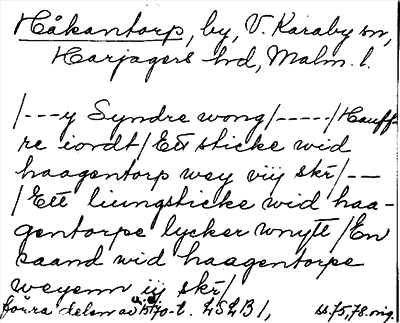 Håkantorp, by, V. Karaby sn,
Harjagers hd, Malm. l.
/---y Syndre wong/-----/Hauff-
re iordt/Ett sticke wid
haagentorp wey viij skr/--
/Ett liungsticke wid haa-
gentorpe lycker wnytt/En
saand wid haagentorpe
weyenn iij skr/
förra delen av 1570-t. LSLB 1, ss. 75, 78. orig.